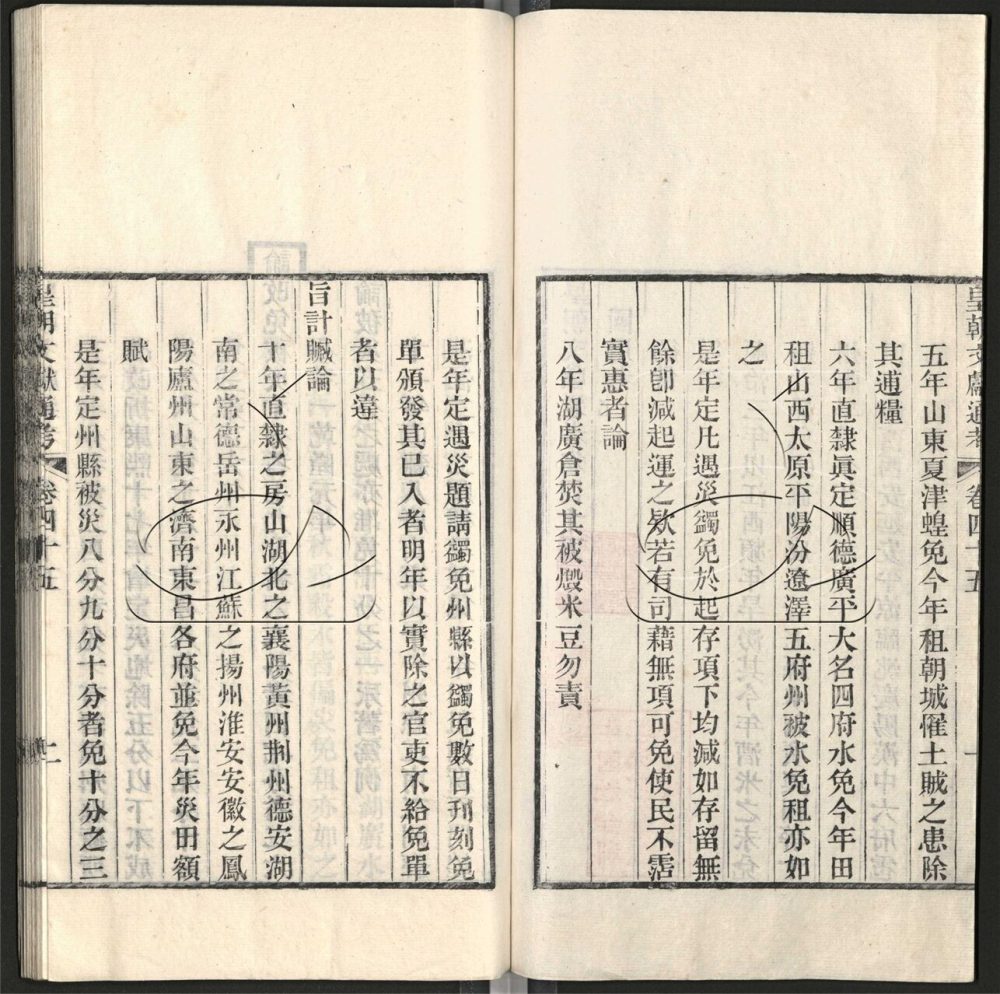 皇朝文獻通考 卷四十五
五年山東夏津蝗免今年租朝城罹土賊之患除
其逋糧
六年直隸眞定順德廣平大名四府水免今年田
租山西太原平陽汾遼澤五府州被水免租亦如
之
是年定凡遇災蠲免於起存項下均減如存留無
餘卽減起運之欵若有司藉無項可免使民不霑
實惠者論
八年湖廣倉焚其被燬米豆勿責
是年定遇災題請蠲免州縣以蠲免數日刊刻免
單頒發其已入者明年以實除之官吏不給免單
者以違
旨計贓論
十年直隸之房山湖北之襄陽黃州荆州德安湖
南之常德岳州永州江蘇之揚州淮安安徽之鳳
陽廬州山東之濟南東昌各府並免今年災田額
賦
是年定州縣被災八分九分十分者免十分之三
皇朝文獻通考 卷四十五